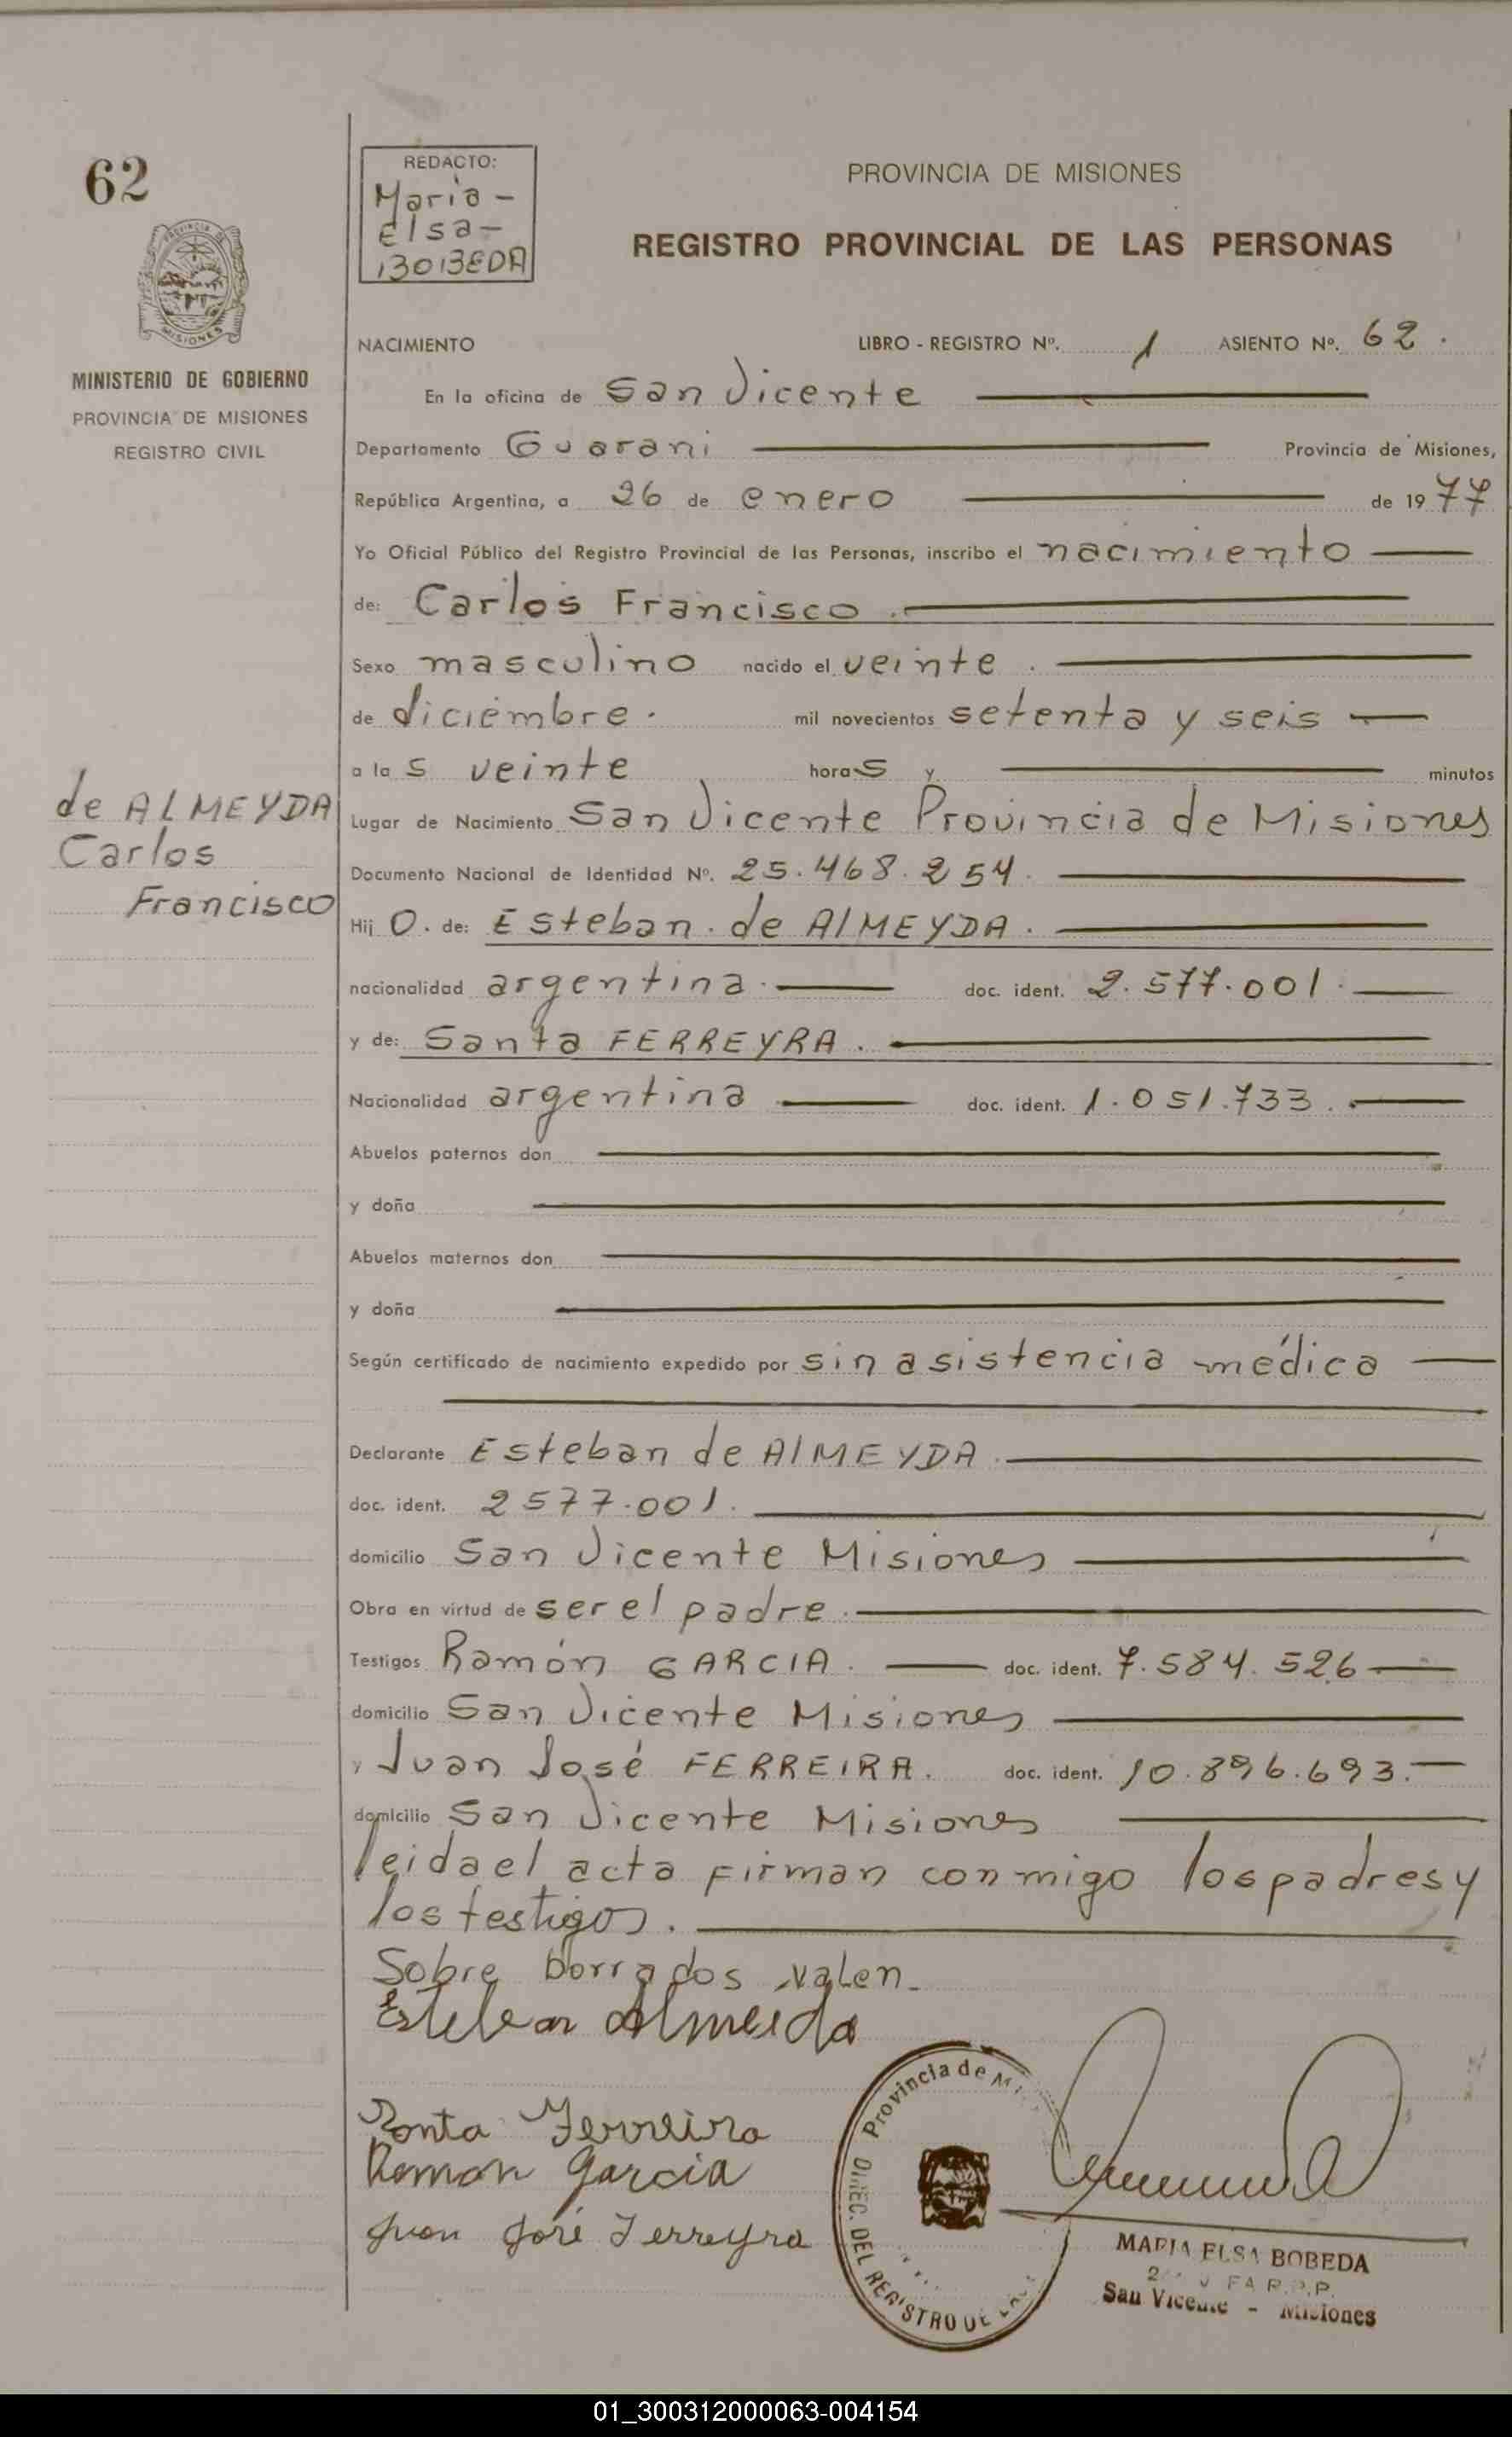 62
PROVINCIA DE
MISIONES
MINISTERIO DE GOBIERNO
PROVINCIA DE MISIONES
REGISTRO CIVIL
de ALMEYDA
Carlos
Francisco
REDACTO:
Maria -
Elsa -
BOBEDA
PROVINCIA DE MISIONES
REGISTRO PROVINCIAL DE LAS PERSONAS
NACIMIENTO LIBRO - REGISTRO Nº. 1 ASIENTO Nº. 62.
En la oficina de San Vicente
Departamento Guarani Provincia de Misiones,
República Argentina, a 26 de enero de 1977
Yo Oficial Público del Registro Provincial de las Personas, inscribo el nacimiento
de: Carlos Francisco.
Sexo masculino nacido el veinte.
de diciembre. mil novecientos setenta y seis
a las veinte horas y minutos
Lugar de Nacimiento San Vicente Provincia de Misiones
Documento Nacional de Identidad Nº. 25.468.254.
Hijo. de: Esteban. de AlMEYDA.
nacionalidad argentina. doc. ident. 2.577.001.
y de: Santa FERREYRA.
Nacionalidad argentina doc. ident. 1.051.733.
Abuelos paternos don
y doña
Abuelos maternos don
y doña
Según certificado de nacimiento expedido por sin asistencia médica
Declarante Esteban de AlMEYDA.
doc. ident. 2577.001.
domicilio San Vicente Misiones
Obra en virtud de ser el padre.
Testigos Ramón GARCIA. doc. ident. 7.584.526
domicilio San Vicente Misiones
y Juan José FERREIRA. doc. ident. 10.896.693.
domicilio San Vicente Misiones
leida el acta firman conmigo los padres y
los testigos.
Sobre borrados valen.
Esteban Almeida
Santa Ferreira
Ramon Garcia
Juan José Ferreyra
Provincia de
DIREC. DEL REGISTRO DE
MARIA ELSA BOBEDA
R.P.P.
San Vicente - Misiones
01_300312000063-004154